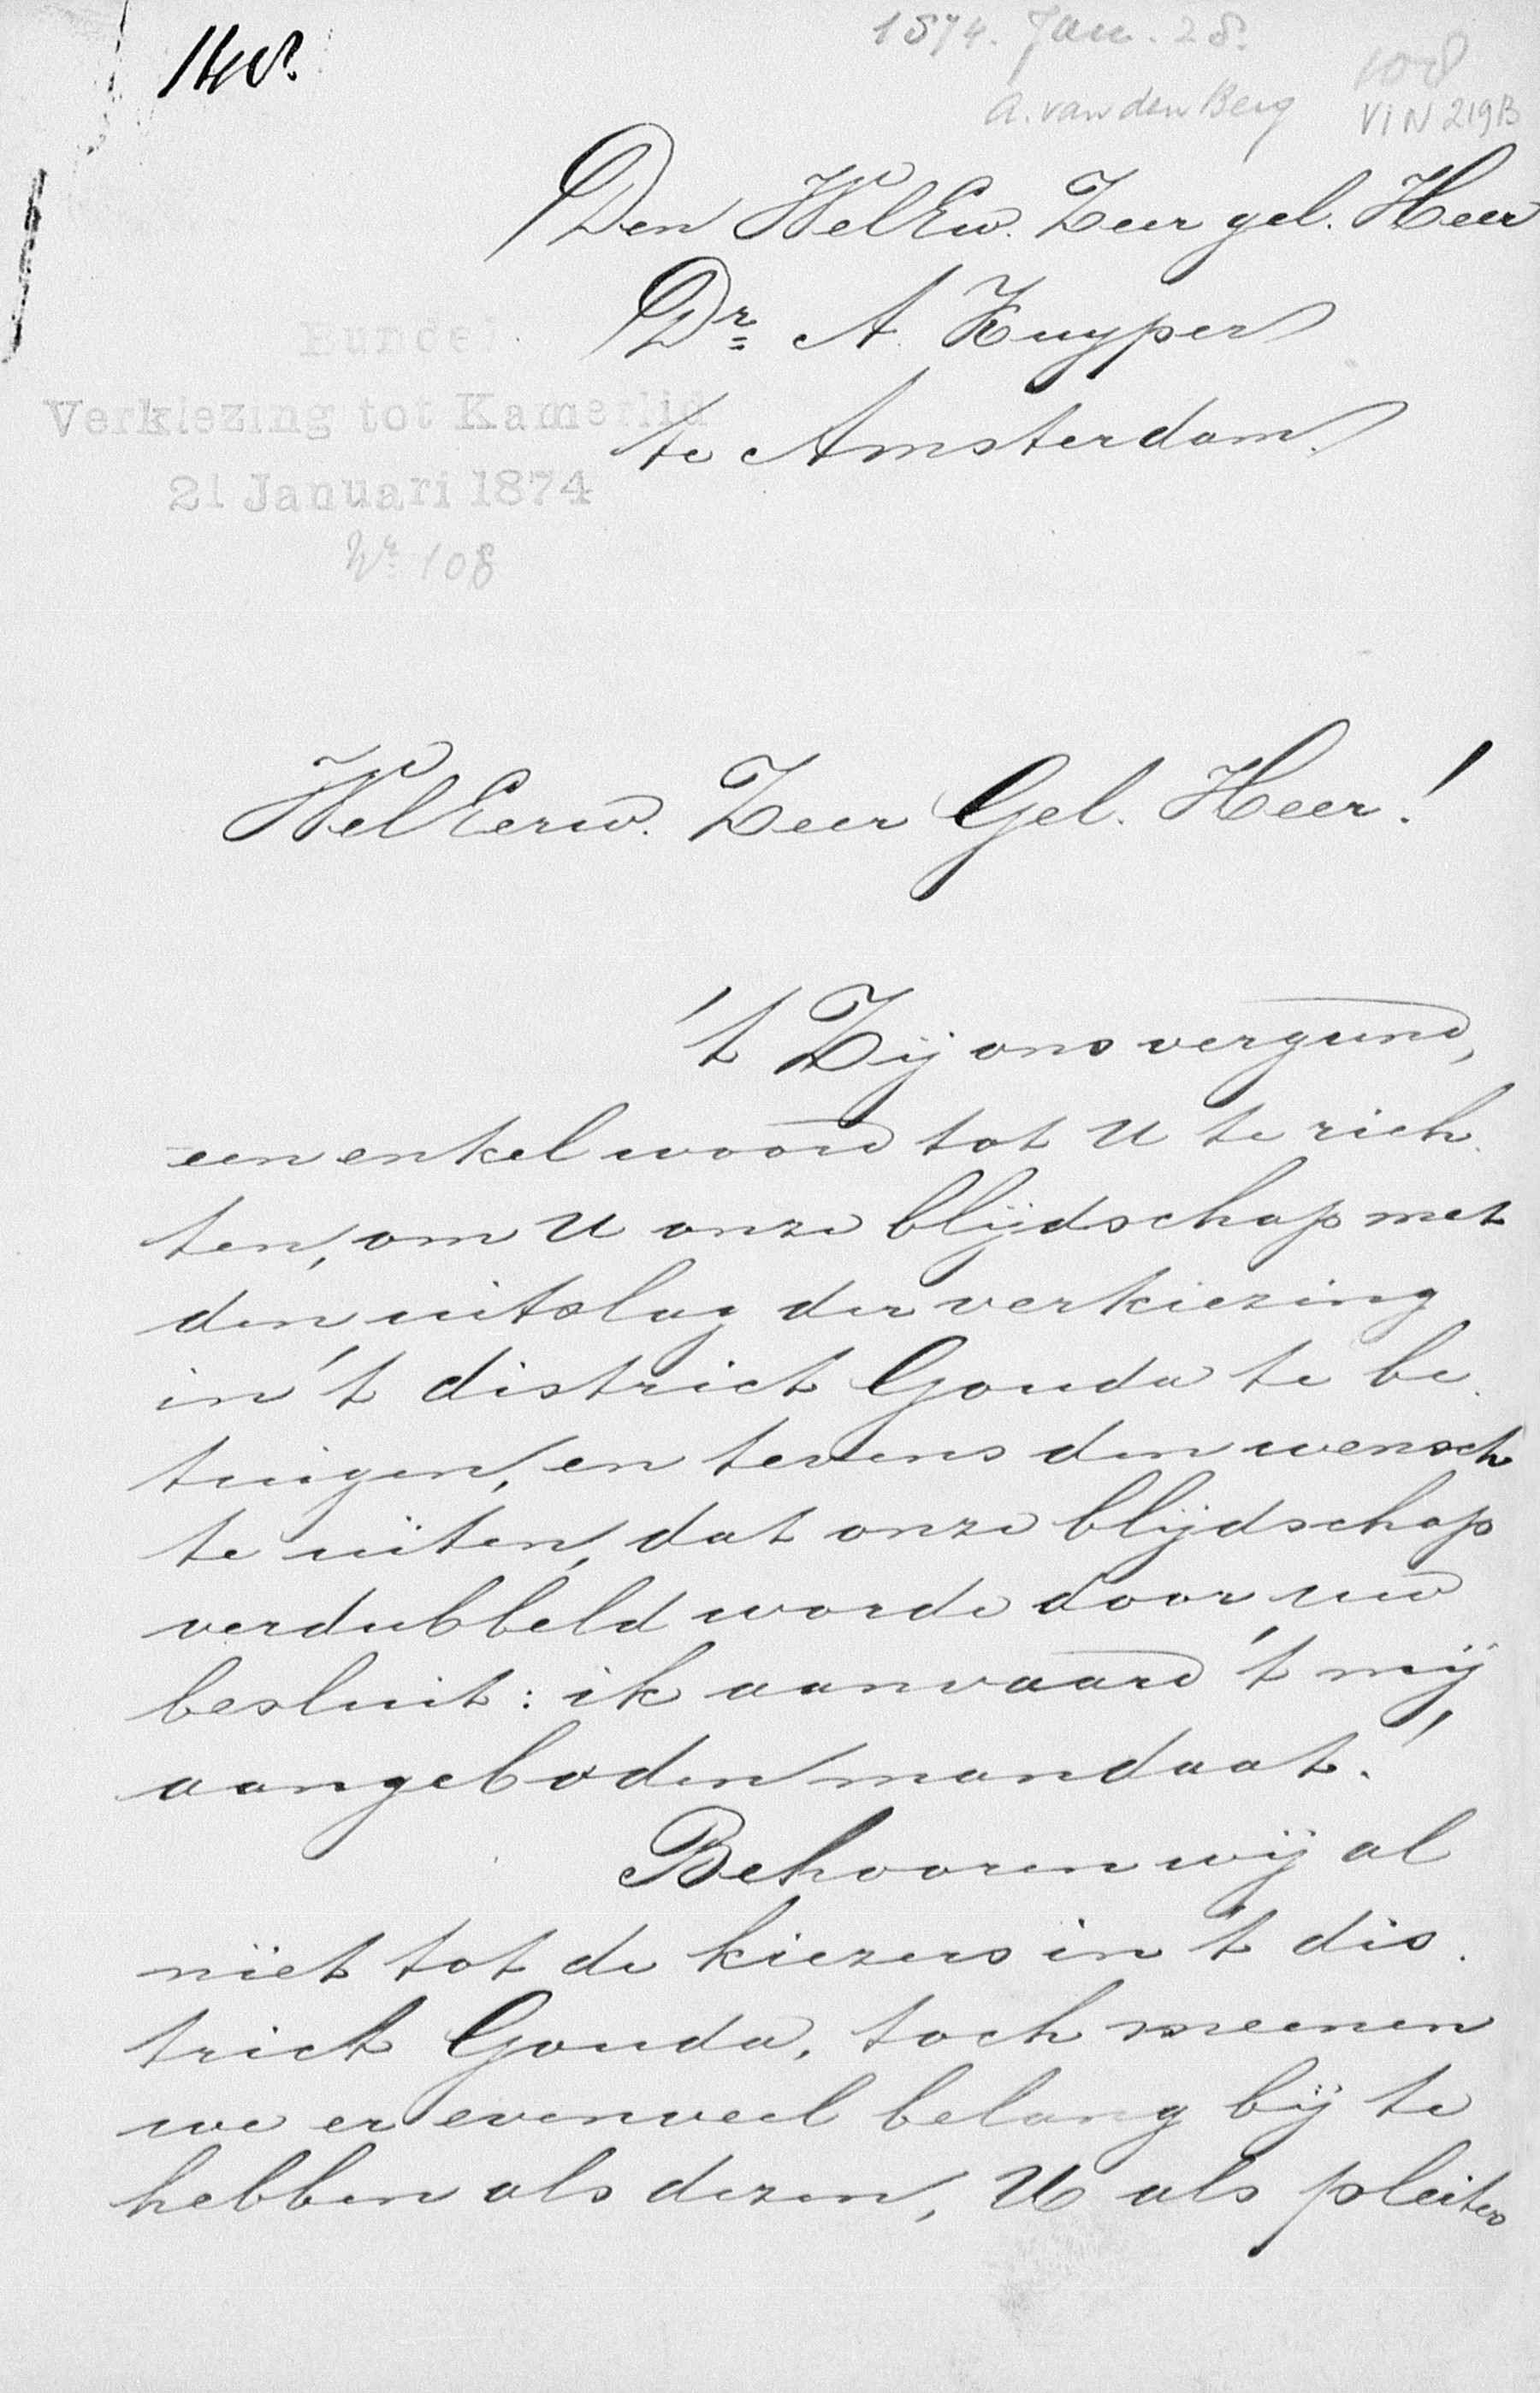 1874. Jan. 28.
A. van den Berg
108
VIN 219B
Den WelEw. Zeer gel. Heer
Dr. A. Kuyper
te Amsterdam.
Bundel
Verkiezing tot Kamerlid
21 Januari 1874
Nr. 108
WelEerw. Zeer Gel. Heer!
't Zij ons vergund,
een enkel woord tot U te rich
ten, om U onze blijdschap met
den uitslag der verkiezing
in 't district Gouda te be
tuigen, en tevens den wensch
te uiten, dat onze blijdschap
verdubbeld worde door uw
besluit: ik aanvaard 't mij
aangeboden mandaat!
Behooren wij al
niet tot de kiezers in 't dis
trict Gouda, toch meenen
we er evenveel belang bij te
hebben als dezen, U als pleiter